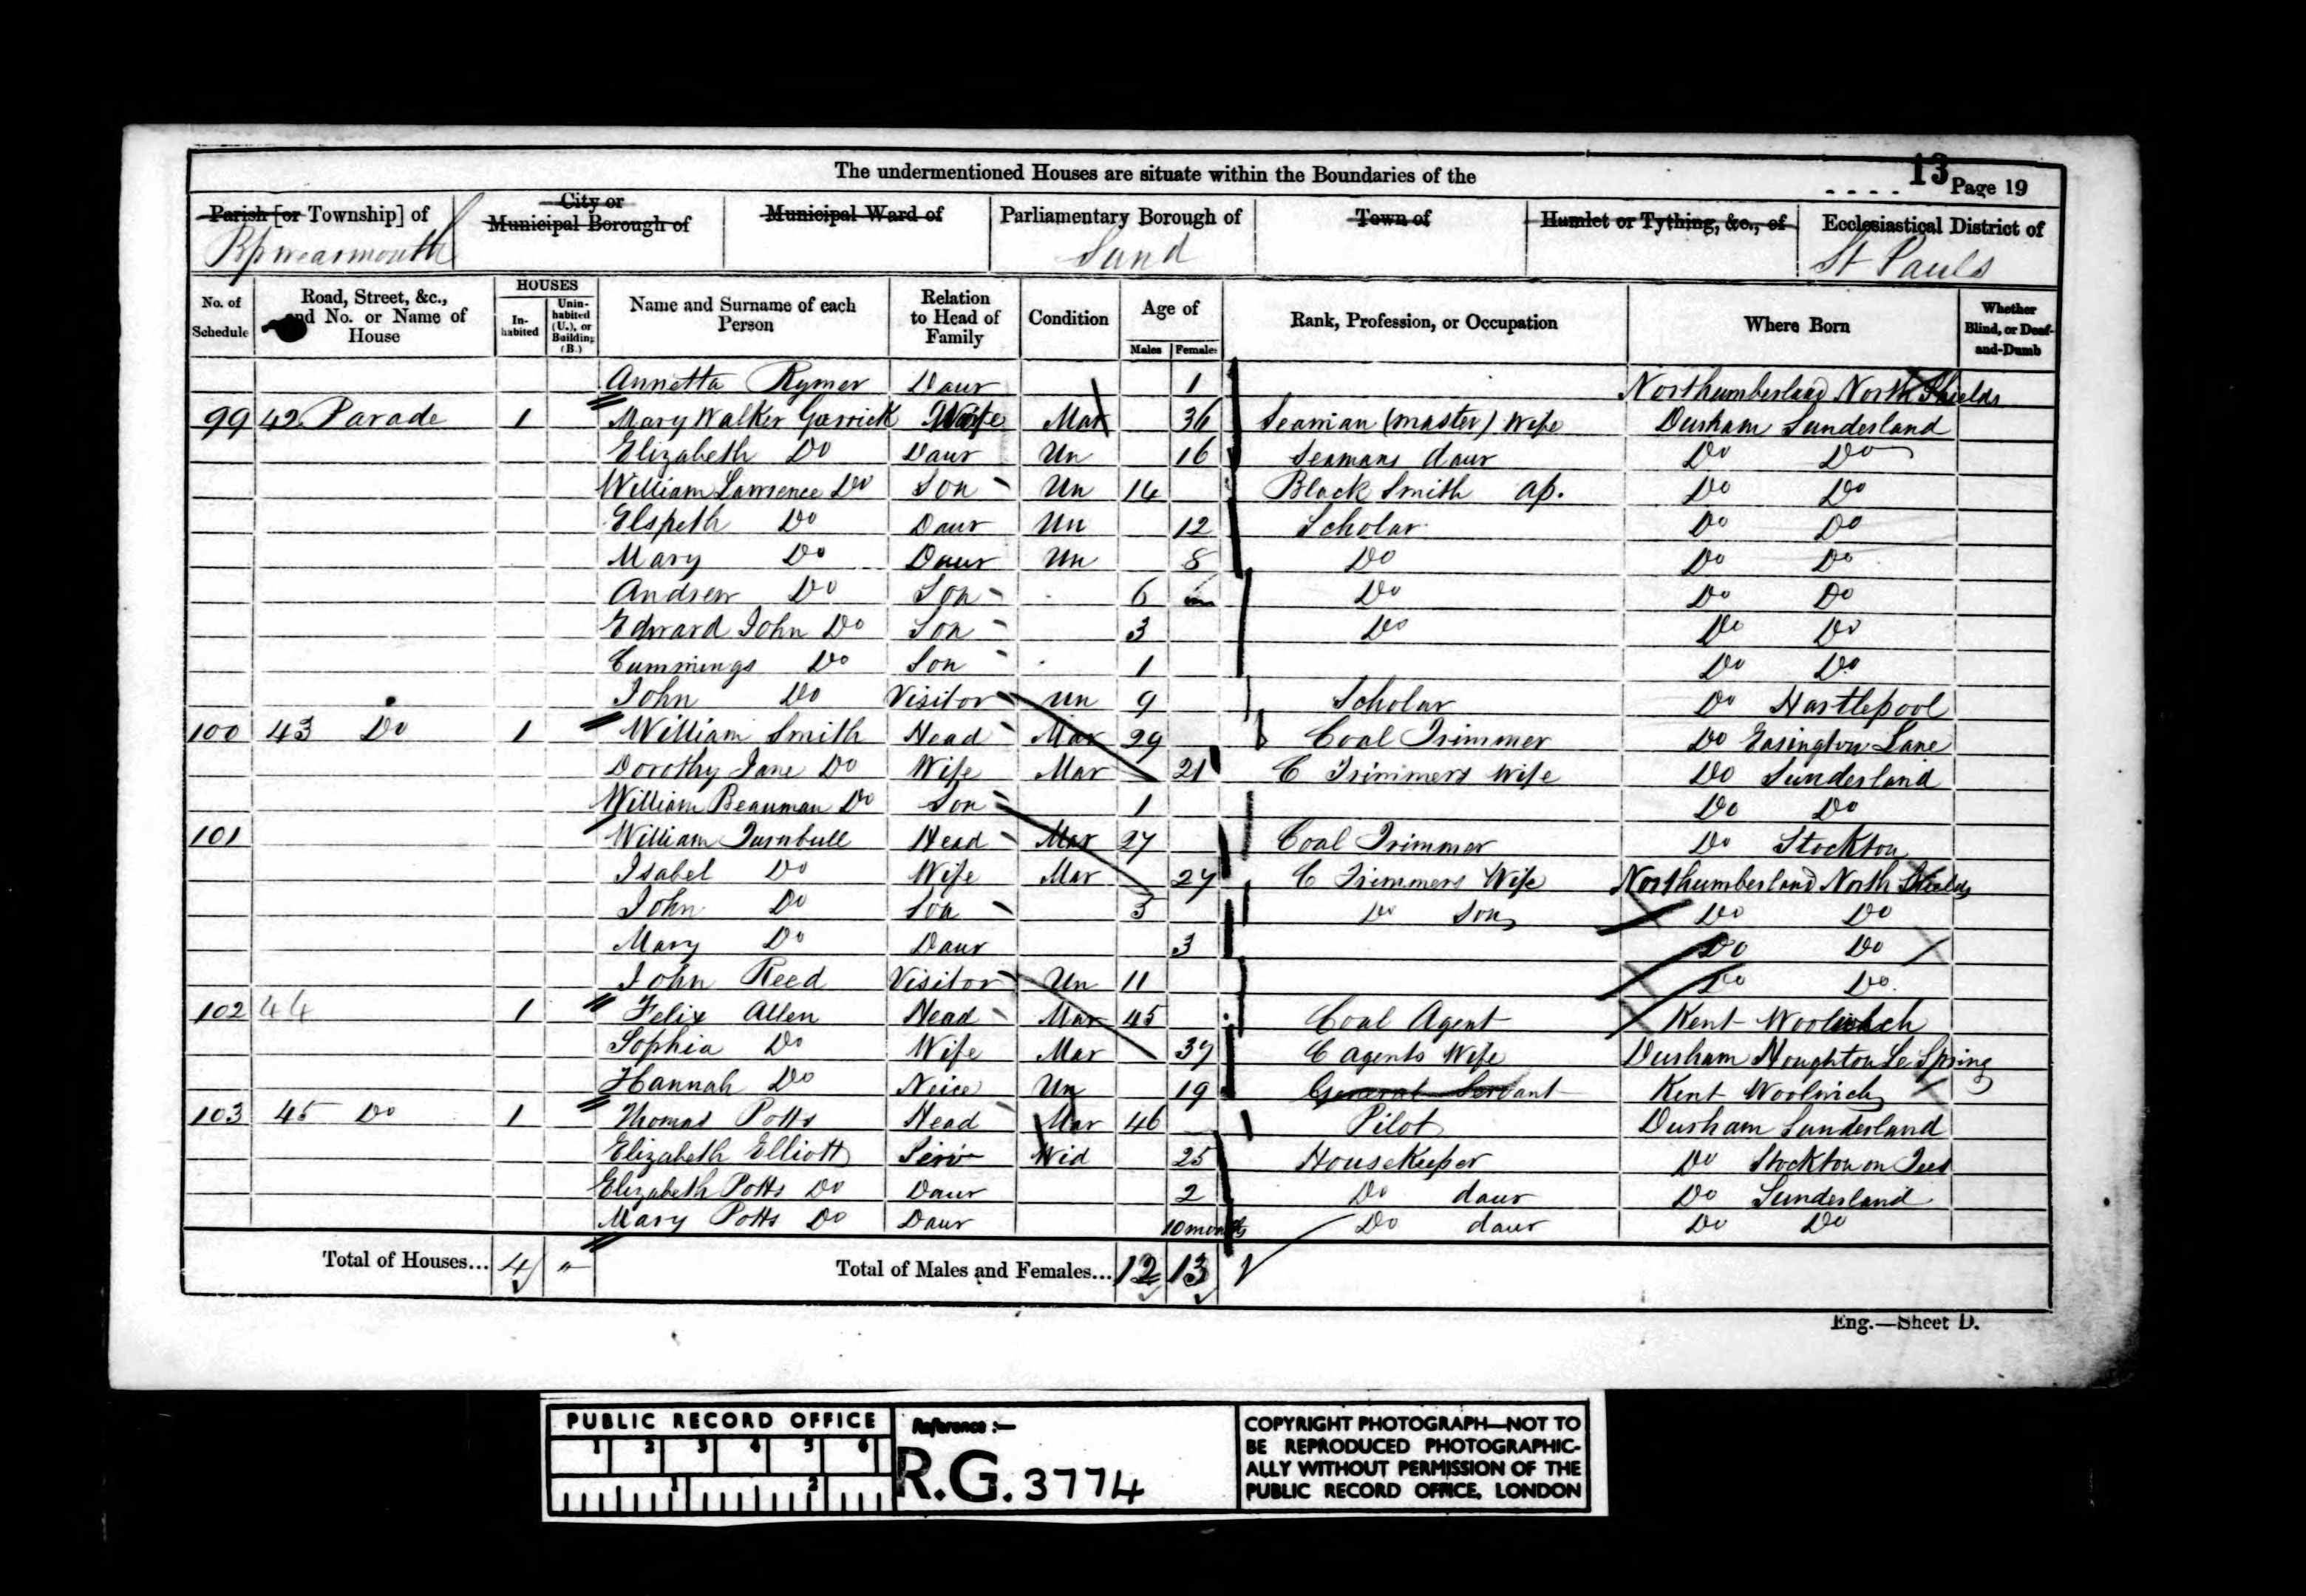 The undermentioned Houses are situate within the Boundaries of the
13 Page 19
Parish [or Township] of
City or Municipal Borough of
Municipal Ward of
Parliamentary Borough of
Town of
Hamlet or Tything, &c., of
Ecclesiastical District of
Bpwearmouth Sund St Pauls
No. of Schedule
Road, Street, &c., and No. or Name of House
HOUSES
In-habited
Unin-habited (U.), or Building (B.)
Name and Surname of each Person
Relation to Head of Family
Condition
Age of
Males Females
Rank, Profession, or Occupation
Where Born
Whether Blind, or Deaf-and-Dumb
Annetta Rymer Daur 1 Northumberland North Shields
99 42 Parade 1 Mary Walker Garrick Wife Mar 36 Seaman (master) Wife Durham Sunderland
Elizabeth Do Daur Un 16 Seamans daur Do Do
William Lawrence Do Son Un 14 Black Smith ap. Do Do
Elspeth Do Daur Un 12 Scholar Do Do
Mary Do Daur Un 8 Do Do Do
Andrew Do Son 6 Do Do Do
Edward John Do Son 3 Do Do Do
Cummings Do Son 1 Do Do
John Do Visitor Un 9 Scholar Do Hartlepool
100 43 Do 1 William Smith Head Mar 29 Coal Trimmer Do Easington Lane
Dorothy Jane Do Wife Mar 21 C Trimmers Wife Do Sunderland
William Beauman Do Son 1 Do Do
101 William Turnbull Head Mar 27 Coal Trimmer Do Stockton
Isabel Do Wife Mar 27 C Trimmers Wife Northumberland North Shields
John Do Son 5 Do Son Do Do
Mary Do Daur 3 Do Do
John Reed Visitor Un 11 Do Do
102 44 1 Felix Allen Head Mar 45 Coal Agent Kent Woolwich
Sophia Do Wife Mar 37 C Agents Wife Durham Houghton Le Spring
Hannah Do Neice Un 19 General Servant Kent Woolwich
103 45 Do 1 Thomas Potts Head Mar 46 Pilot Durham Sunderland
Elizabeth Elliott Serv Wid 25 Housekeeper Do Stockton on Tees
Elizabeth Potts Do Daur 2 Do daur Do Sunderland
Mary Potts Do Daur 10 months Do daur Do Do
Total of Houses... 4 Total of Males and Females... 12 13
Eng.—Sheet D.
PUBLIC RECORD OFFICE
1 2 3 4 5 6
1 2
Reference :—
R.G. 3774
COPYRIGHT PHOTOGRAPH—NOT TO
BE REPRODUCED PHOTOGRAPHIC-
ALLY WITHOUT PERMISSION OF THE
PUBLIC RECORD OFFICE, LONDON